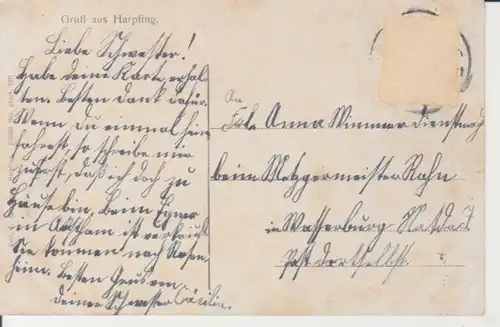 Gruß aus Harpfing.
Liebe Schwester!
Habe deine Karte erhal-
ten. Besten Dank dafür.
Wenn du einmal heim
fahrest, so schreibe mir
zuerst, daß ich doch zu
Hause bin, beim
in ist verkauft
Sie kommen nach Rosen-
heim. Besten Gruß von
deiner Schwester Cäcilie.
An
Frl. Anna Wimmer Dienstmagd
beim Metzgermeister Rahn
in Wasserburg
Post dortselbst.